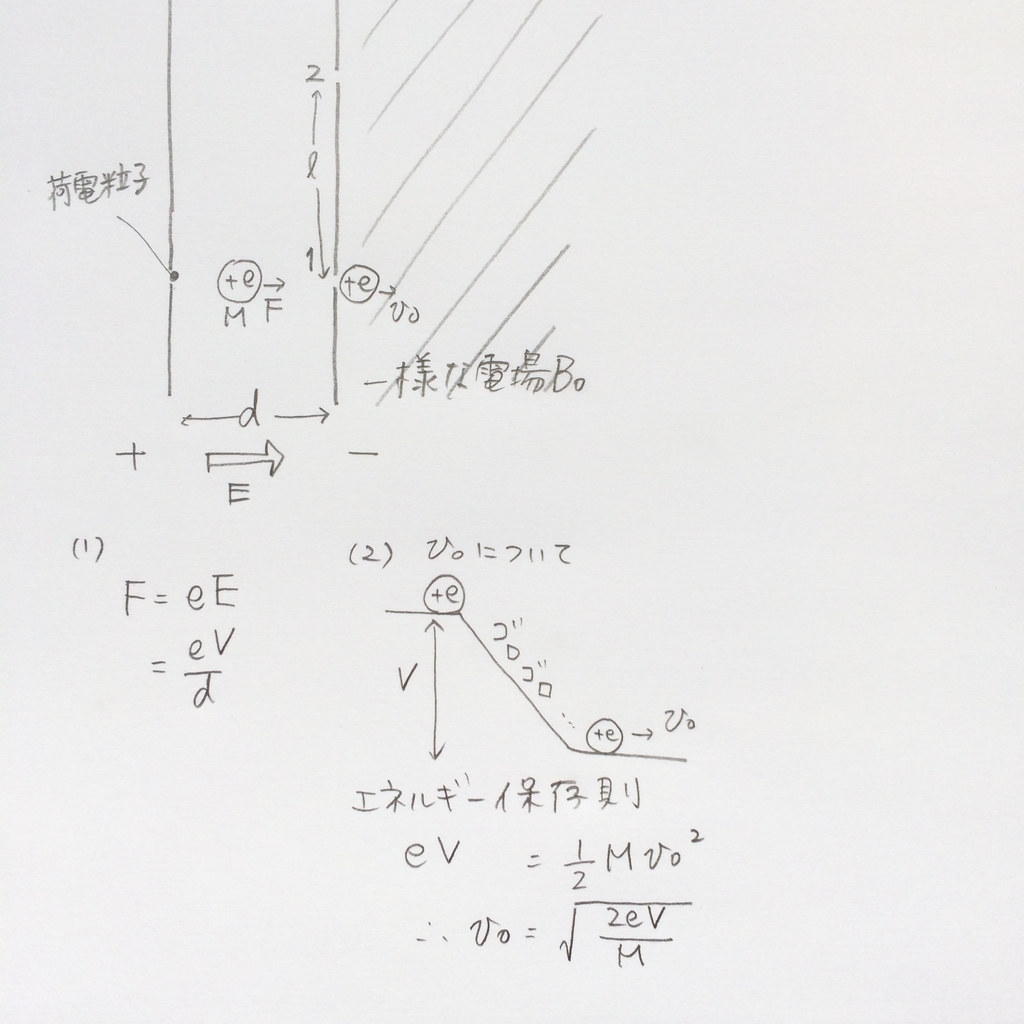 2
l
荷電粒子
1
+e
+e
M
F
v₀
一様な電場B₀
d
+
−
E
(1)
F = eE
= eV/d
(2) v₀について
+e
V
ゴロゴロ…
+e → v₀
エネルギー保存則
eV = 1/2 Mv₀²
∴ v₀ = √(2eV/M)